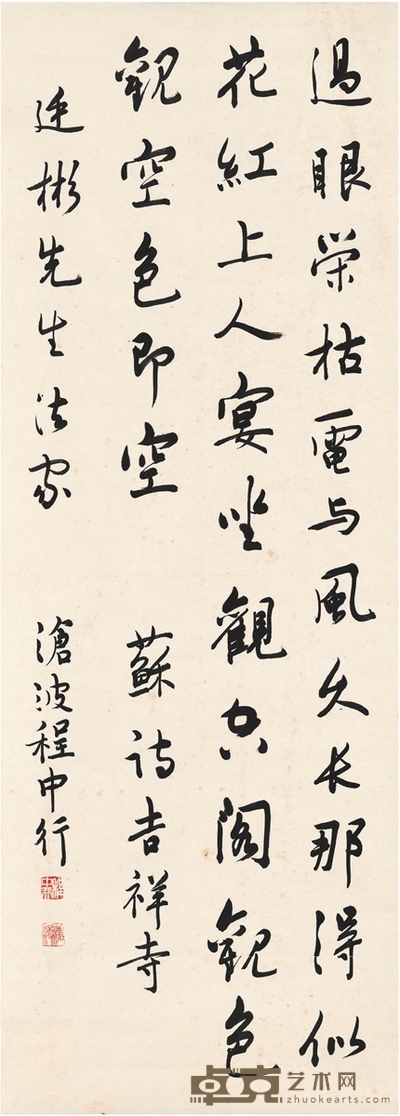 過眼榮枯電与風久长那得似
花紅上人宴坐觀空閣觀色
觀空色即空
蘇詩吉祥寺
廷彬先生法家
滄波程中行
卓克艺术网
zhuokearts.com